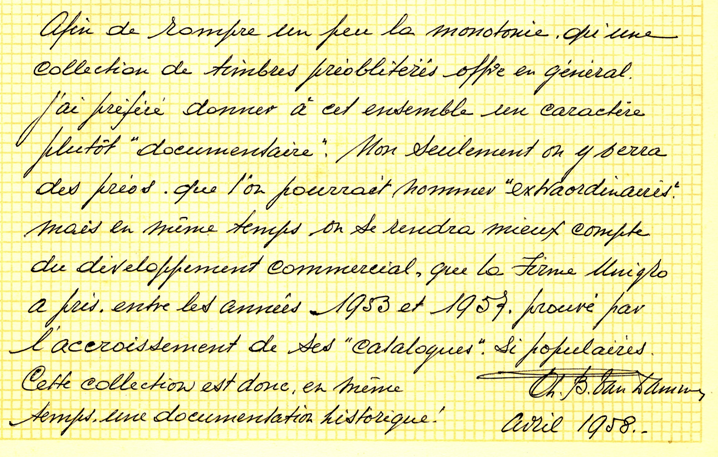 Afin de rompre un peu la monotonie, qu'une
collection de timbres préoblitérés offre en général.
J'ai préféré donner à cet ensemble un caractère
plutôt "documentaire". Non seulement on y verra
des préos. que l'on pourrait nommer "extraordinaires".
mais en même temps on se rendra mieux compte
du développement commercial, que la Firme Unigro
a pris. entre les années 1953 et 1957. prouvé par
l'accroissement de ses "catalogues". Si populaires.
Cette collection est donc, en même
temps. une documentation historique!
Ch. B. Van Damme
Avril 1958.-